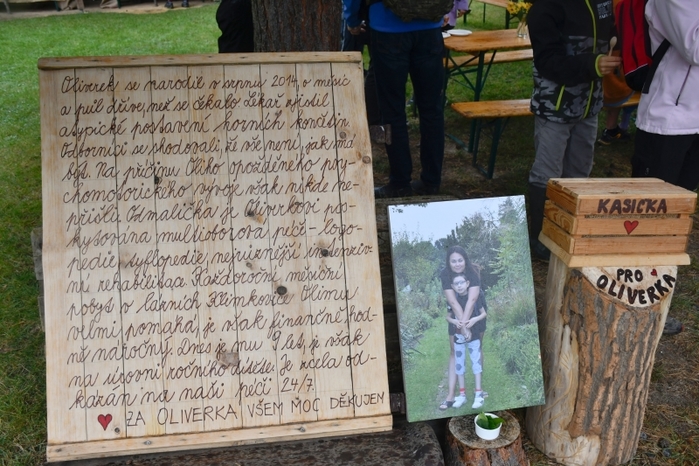 Oliverek se narodil v srpnu 2014, o měsíc
a půl dříve, než se čekalo. Lékař zjistil
atypické postavení horních končetin.
Odborníci se shodovali, že vše není, jak má
být. Na příčinu Oliho opožděného psy-
chomotorického vývoje však nikdo ne-
přišla. Odmalička je Oliverkovi pos-
kytována multioborová péče - logo-
pedie, tyflopedie, nejrůznější intenziv-
ní rehabilitace. Každoroční měsíční
pobyt v lázních Klimkovice Olimu
velmi pomáhá, je však finančně hod-
ně náročný. Dnes je mu 9 let, je však
na úrovni ročního dítěte. Je zcela od-
kázán na naši péči 24/7
ZA OLIVERKA VŠEM MOC DĚKUJEM
KASIČKA
PRO
OLIVERKA